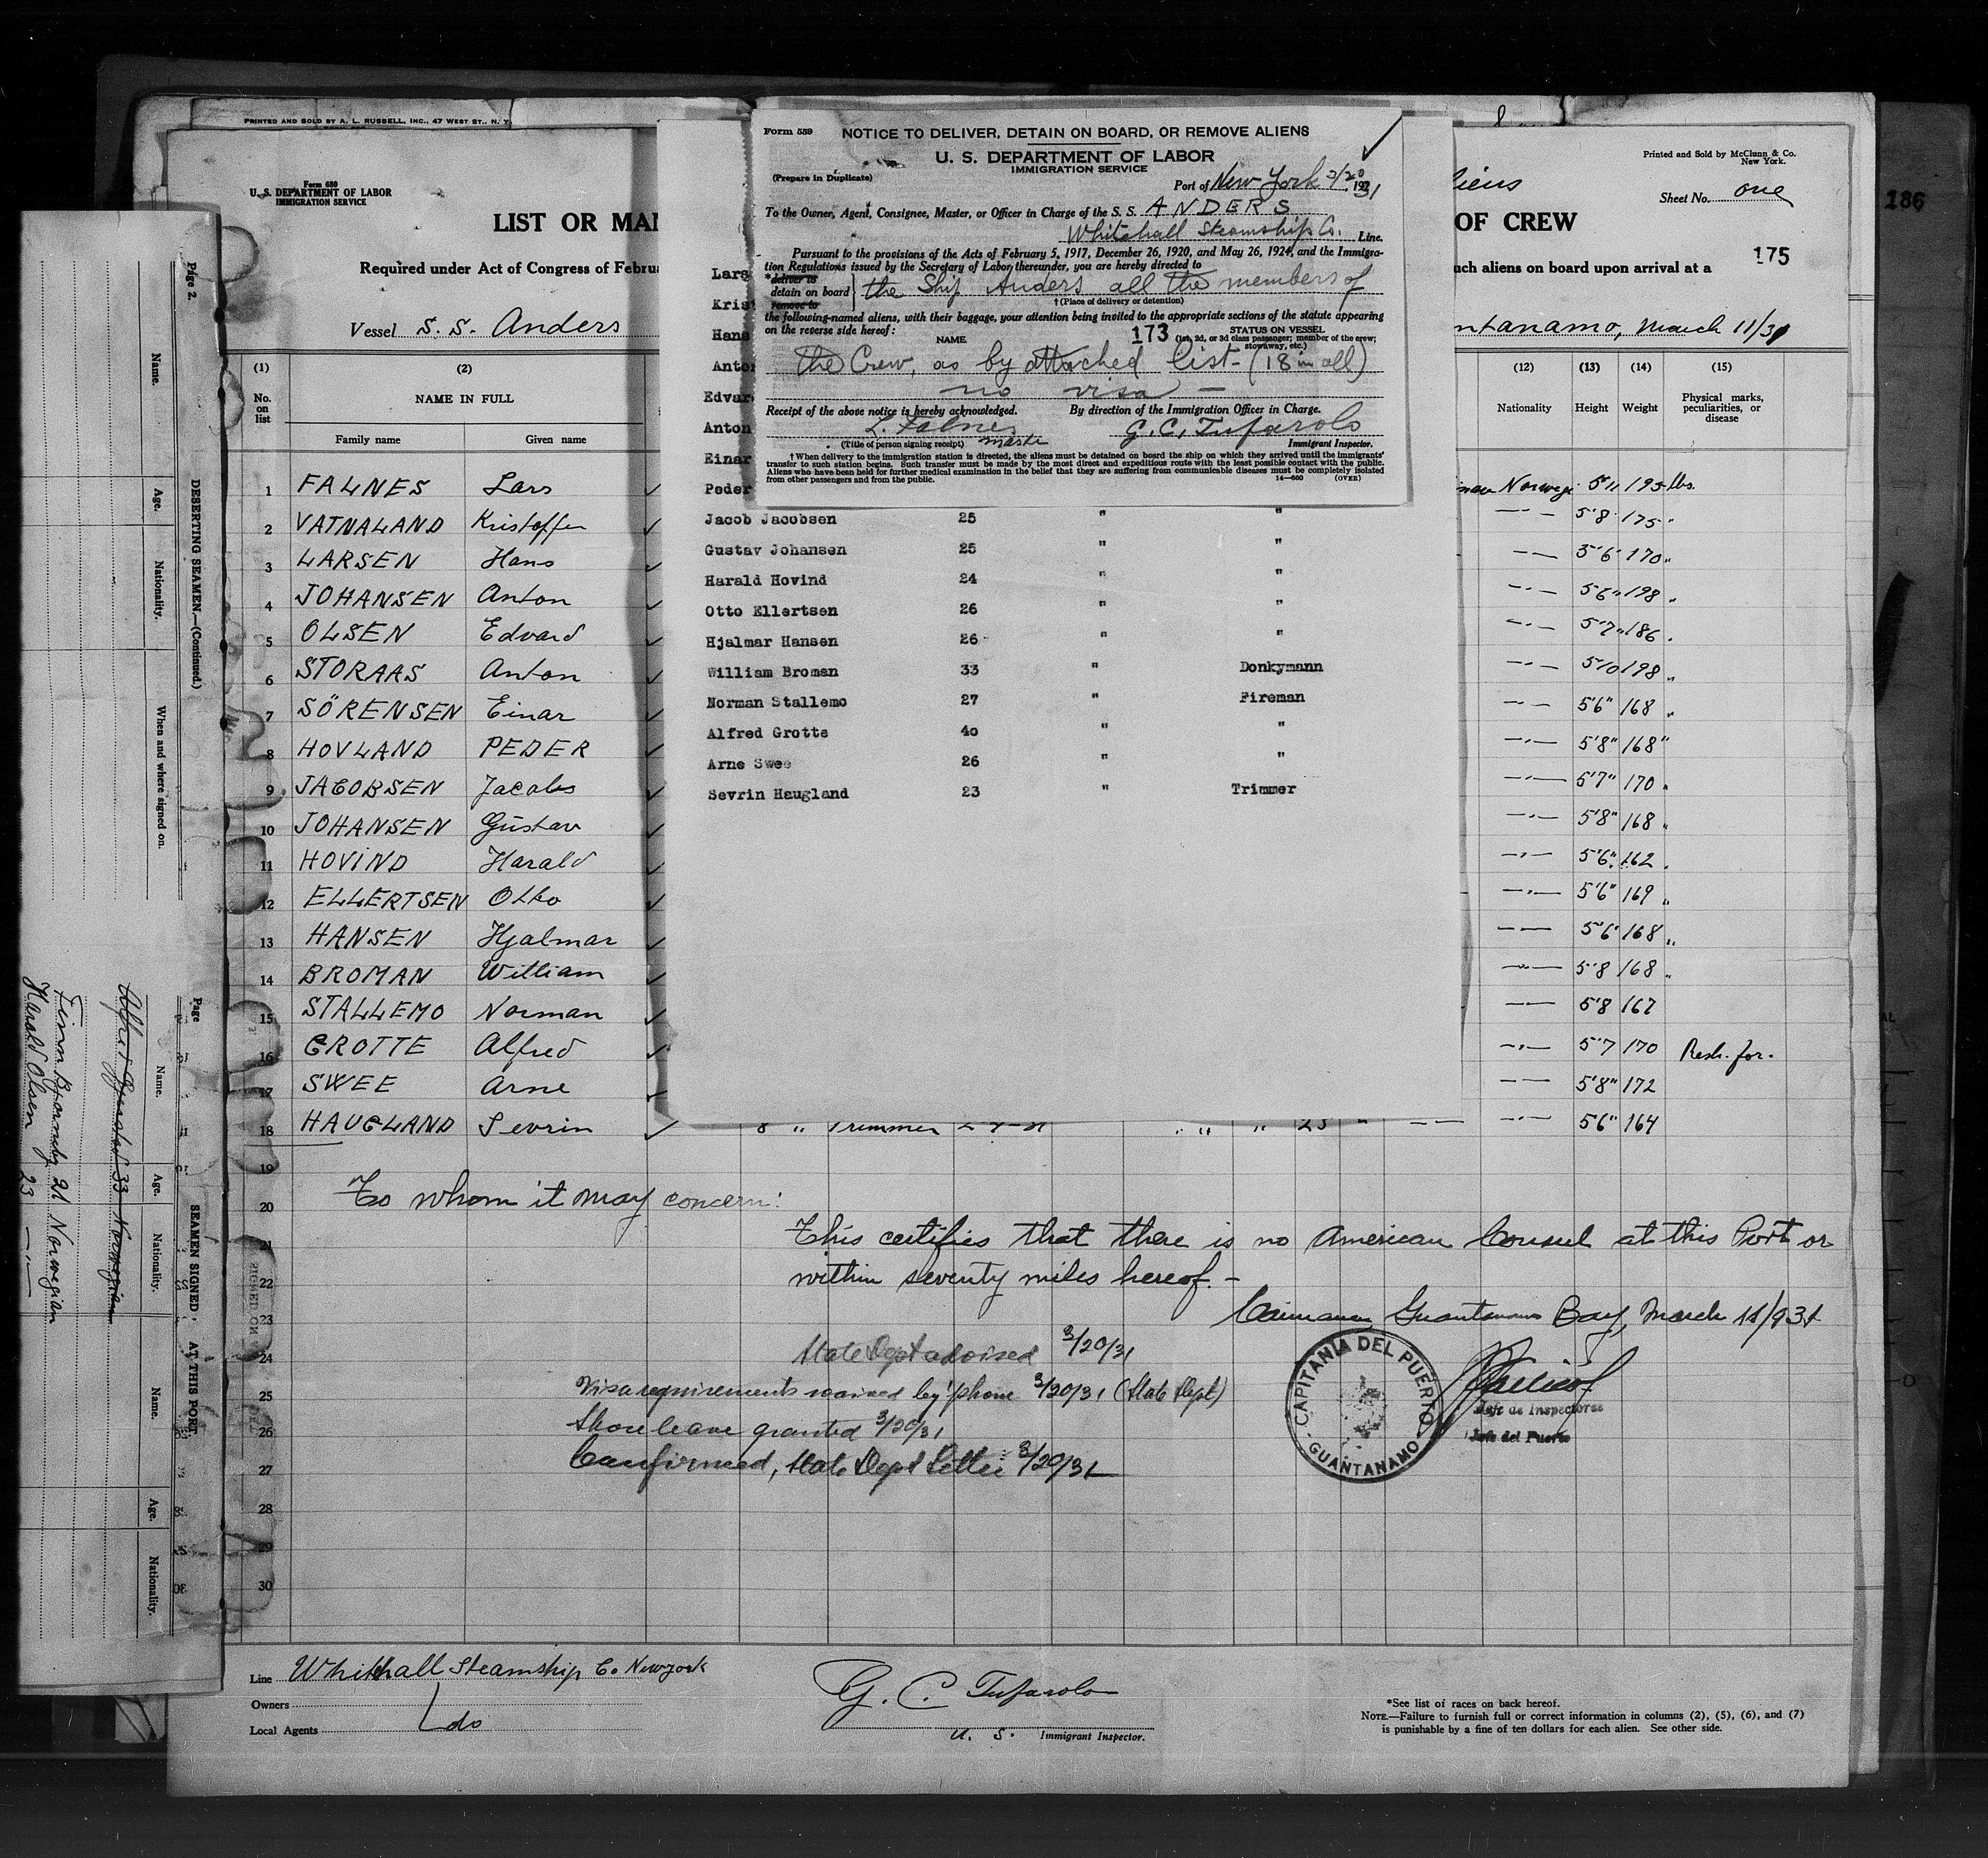 PRINTED AND SOLD BY A. L. RUSSELL, INC., 47 WEST ST., N. Y.
Form 680
U. S. DEPARTMENT OF LABOR
IMMIGRATION SERVICE
LIST OR MA
Required under Act of Congress of Februa
Vessel S. S. Anders
Printed and Sold by McClunn & Co.
New York.
liens
Sheet No. one
OF CREW
uch aliens on board upon arrival at a
175
ntanamo, March 11/31
186
Form 559
NOTICE TO DELIVER, DETAIN ON BOARD, OR REMOVE ALIENS
U. S. DEPARTMENT OF LABOR
IMMIGRATION SERVICE
(Prepare in Duplicate)
Port of New York 3/20, 1931
To the Owner, Agent, Consignee, Master, or Officer in Charge of the S. S. ANDERS
Whitehall Steamship Co. Line.
Pursuant to the provisions of the Acts of February 5, 1917, December 26, 1920, and May 26, 1924, and the Immigra-
tion Regulations issued by the Secretary of Labor thereunder, you are hereby directed to
*deliver to
detain on board
remove to
the Ship Anders all the members of
†(Place of delivery or detention)
the following-named aliens, with their baggage, your attention being invited to the appropriate sections of the statute appearing
on the reverse side hereof:
NAME
173
STATUS ON VESSEL
(1st, 2d, or 3d class passenger; member of the crew;
stowaway, etc.)
the Crew, as by attached list - (18 in all)
no visa -
Receipt of the above notice is hereby acknowledged.
By direction of the Immigration Officer in Charge.
L. Falnes
G. C. Tufarolo
(Title of person signing receipt)
Immigrant Inspector.
† When delivery to the immigration station is directed, the aliens must be detained on board the ship on which they arrived until the immigrants'
transfer to such station begins. Such transfer must be made by the most direct and expeditious route with the least possible contact with the public.
Aliens who have been held for further medical examination in the belief that they are suffering from communicable diseases must be completely isolated
from other passengers and from the public.
14—660 (OVER)
Lars
Kris
Hans
Anto
Edvar
Anton
Einar
Peder
Jacob Jacobsen 25 " "
Gustav Johansen 25 " "
Harald Hovind 24 " "
Otto Ellertsen 26 " "
Hjalmar Hansen 26 " "
William Broman 33 " Donkymann
Norman Stallemo 27 " Fireman
Alfred Grotte 40 " "
Arne Swee 26 " "
Sevrin Haugland 23 " Trimmer
(1) (2) (12) (13) (14) (15)
No. on list
NAME IN FULL
Family name Given name
Nationality Height Weight Physical marks, peculiarities, or disease
1 FALNES Lars Norweg. 5'11 195 lbs.
2 VATNALAND Kristoffer 5'8 175 "
3 LARSEN Hans 5'6 170 "
4 JOHANSEN Anton 5'6" 198 "
5 OLSEN Edvard 5'7" 186 "
6 STORAAS Anton 5'10 198 "
7 SÖRENSEN Einar 5'6" 168 "
8 HOVLAND PEDER 5'8" 168 "
9 JACOBSEN Jacob 5'7" 170 "
10 JOHANSEN Gustav 5'8" 168 "
11 HOVIND Harald 5'6" 162 "
12 ELLERTSEN Otto 5'6" 169 "
13 HANSEN Hjalmar 5'6" 168 "
14 BROMAN William 5'8 168 "
15 STALLEMO Norman 5'8 167
16 GROTTE Alfred 5'7 170
17 SWEE Arne 5'8" 172
18 HAUGLAND Sevrin 8 " Trimmer " " 23 " 5'6" 164
19
20 To whom it may concern:
21 This certifies that there is no American Consul at this Port or
22 within seventy miles hereof. -
23 Caimanera Guantanamo Bay, March 11/931
24 State Dept advised 3/20/31
25 Visa requirements waived by 'phone 3/20/31 (State Dept)
26 Shore leave granted 3/20/31
27 Confirmed, State Dept Letter 3/20/31
28
29
30
CAPITANIA DEL PUERTO
GUANTANAMO
Jefe de Inspectores
Jefe del Puerto
Line Whitehall Steamship Co New York
Owners
Local Agents do
G. C. Tufarolo
U. S. Immigrant Inspector.
*See list of races on back hereof.
NOTE.—Failure to furnish full or correct information in columns (2), (5), (6), and (7)
is punishable by a fine of ten dollars for each alien. See other side.
Page 2.
DESERTING SEAMEN.—(Continued.)
Name. Age. Nationality. When and where signed on.
Page
SEAMEN SIGNED AT THIS PORT.
Name. Age. Nationality. Name. Age. Nationality.
33 Norwegian
21 Norwegian
Harald Olsen 23